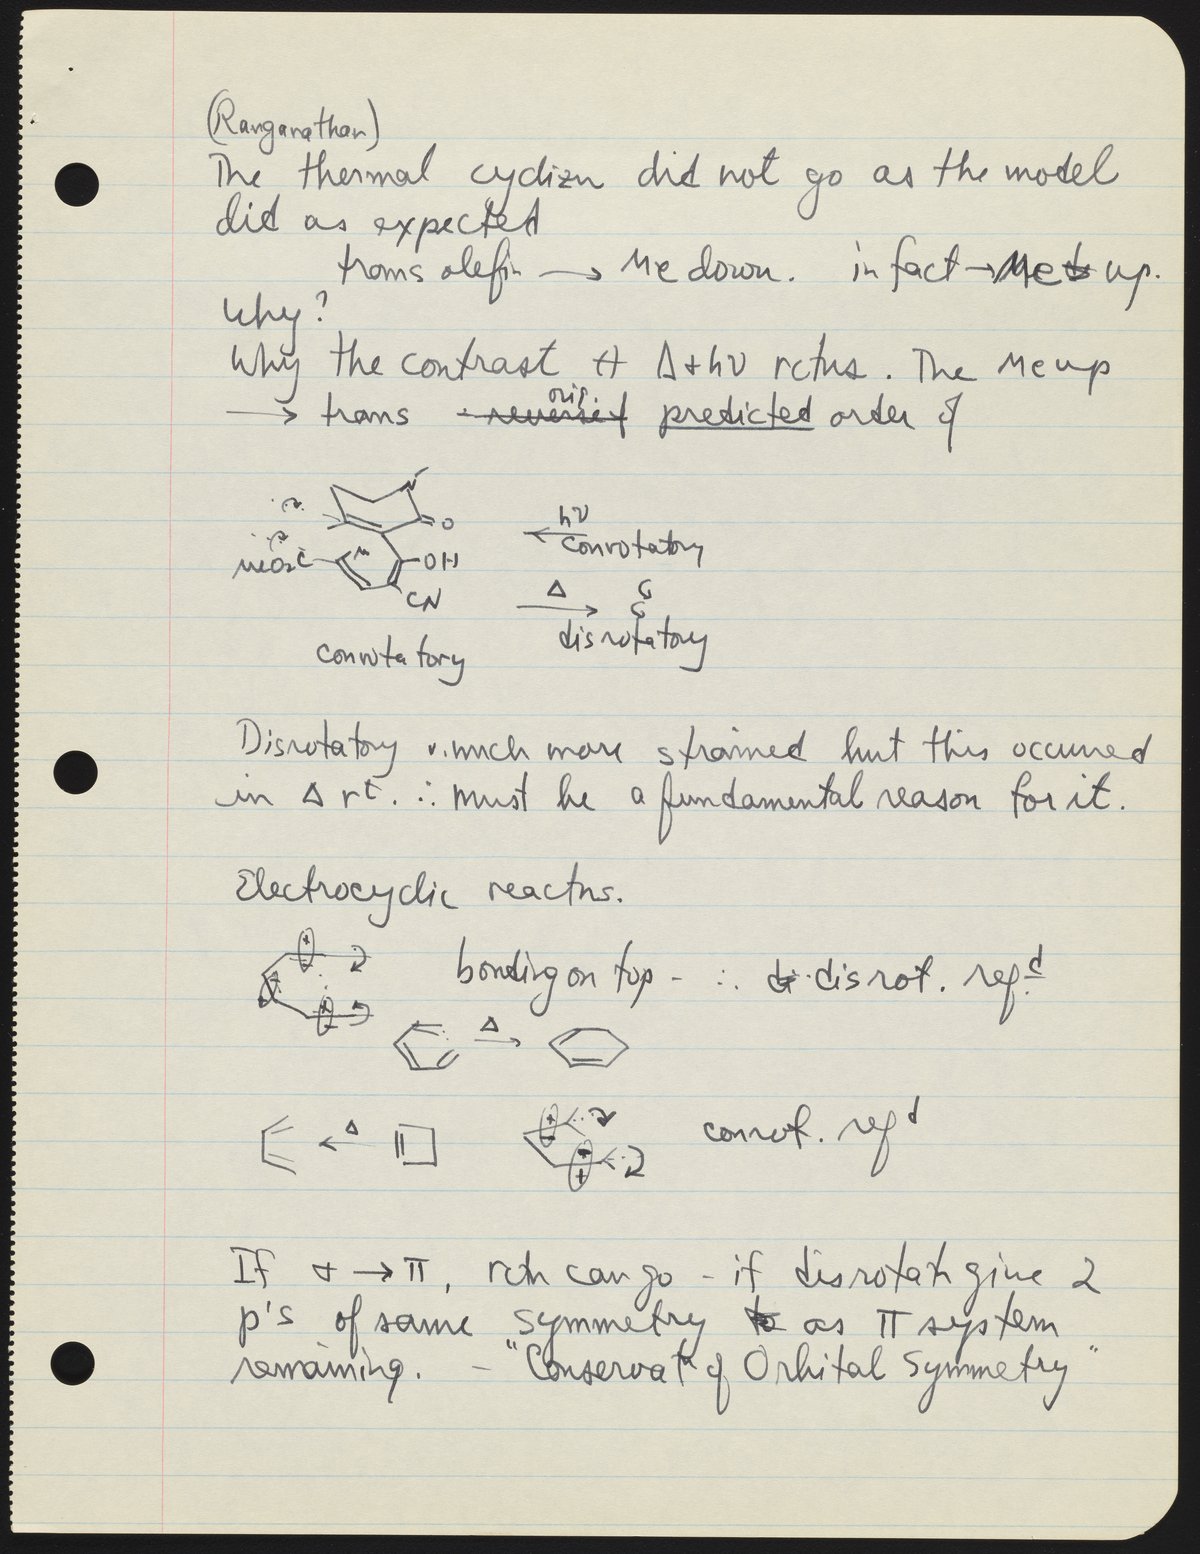 (Ranganathan)
The thermal cyclizn did not go as the model
did as expected
trans olefin → Me down. in fact → Me up.
Why?
Why the contrast Δ + hν rctns. The Me up
→ trans orig. predicted order of
N
O
MeO2C N OH
CN
hν
← conrotatory
Δ
→
disrotatory
conrotatory
Disrotatory v. much more strained but this occurred
in Δ rt. ∴ must be a fundamental reason for it.
Electrocyclic reactns.
bonding on top - ∴ disrot. reqd
Δ
→
Δ
←
conrot. reqd
If σ → π, rctn can go - if disrotatn give 2
p's of same symmetry as π system
remaining. - "Conservatn of Orbital Symmetry"